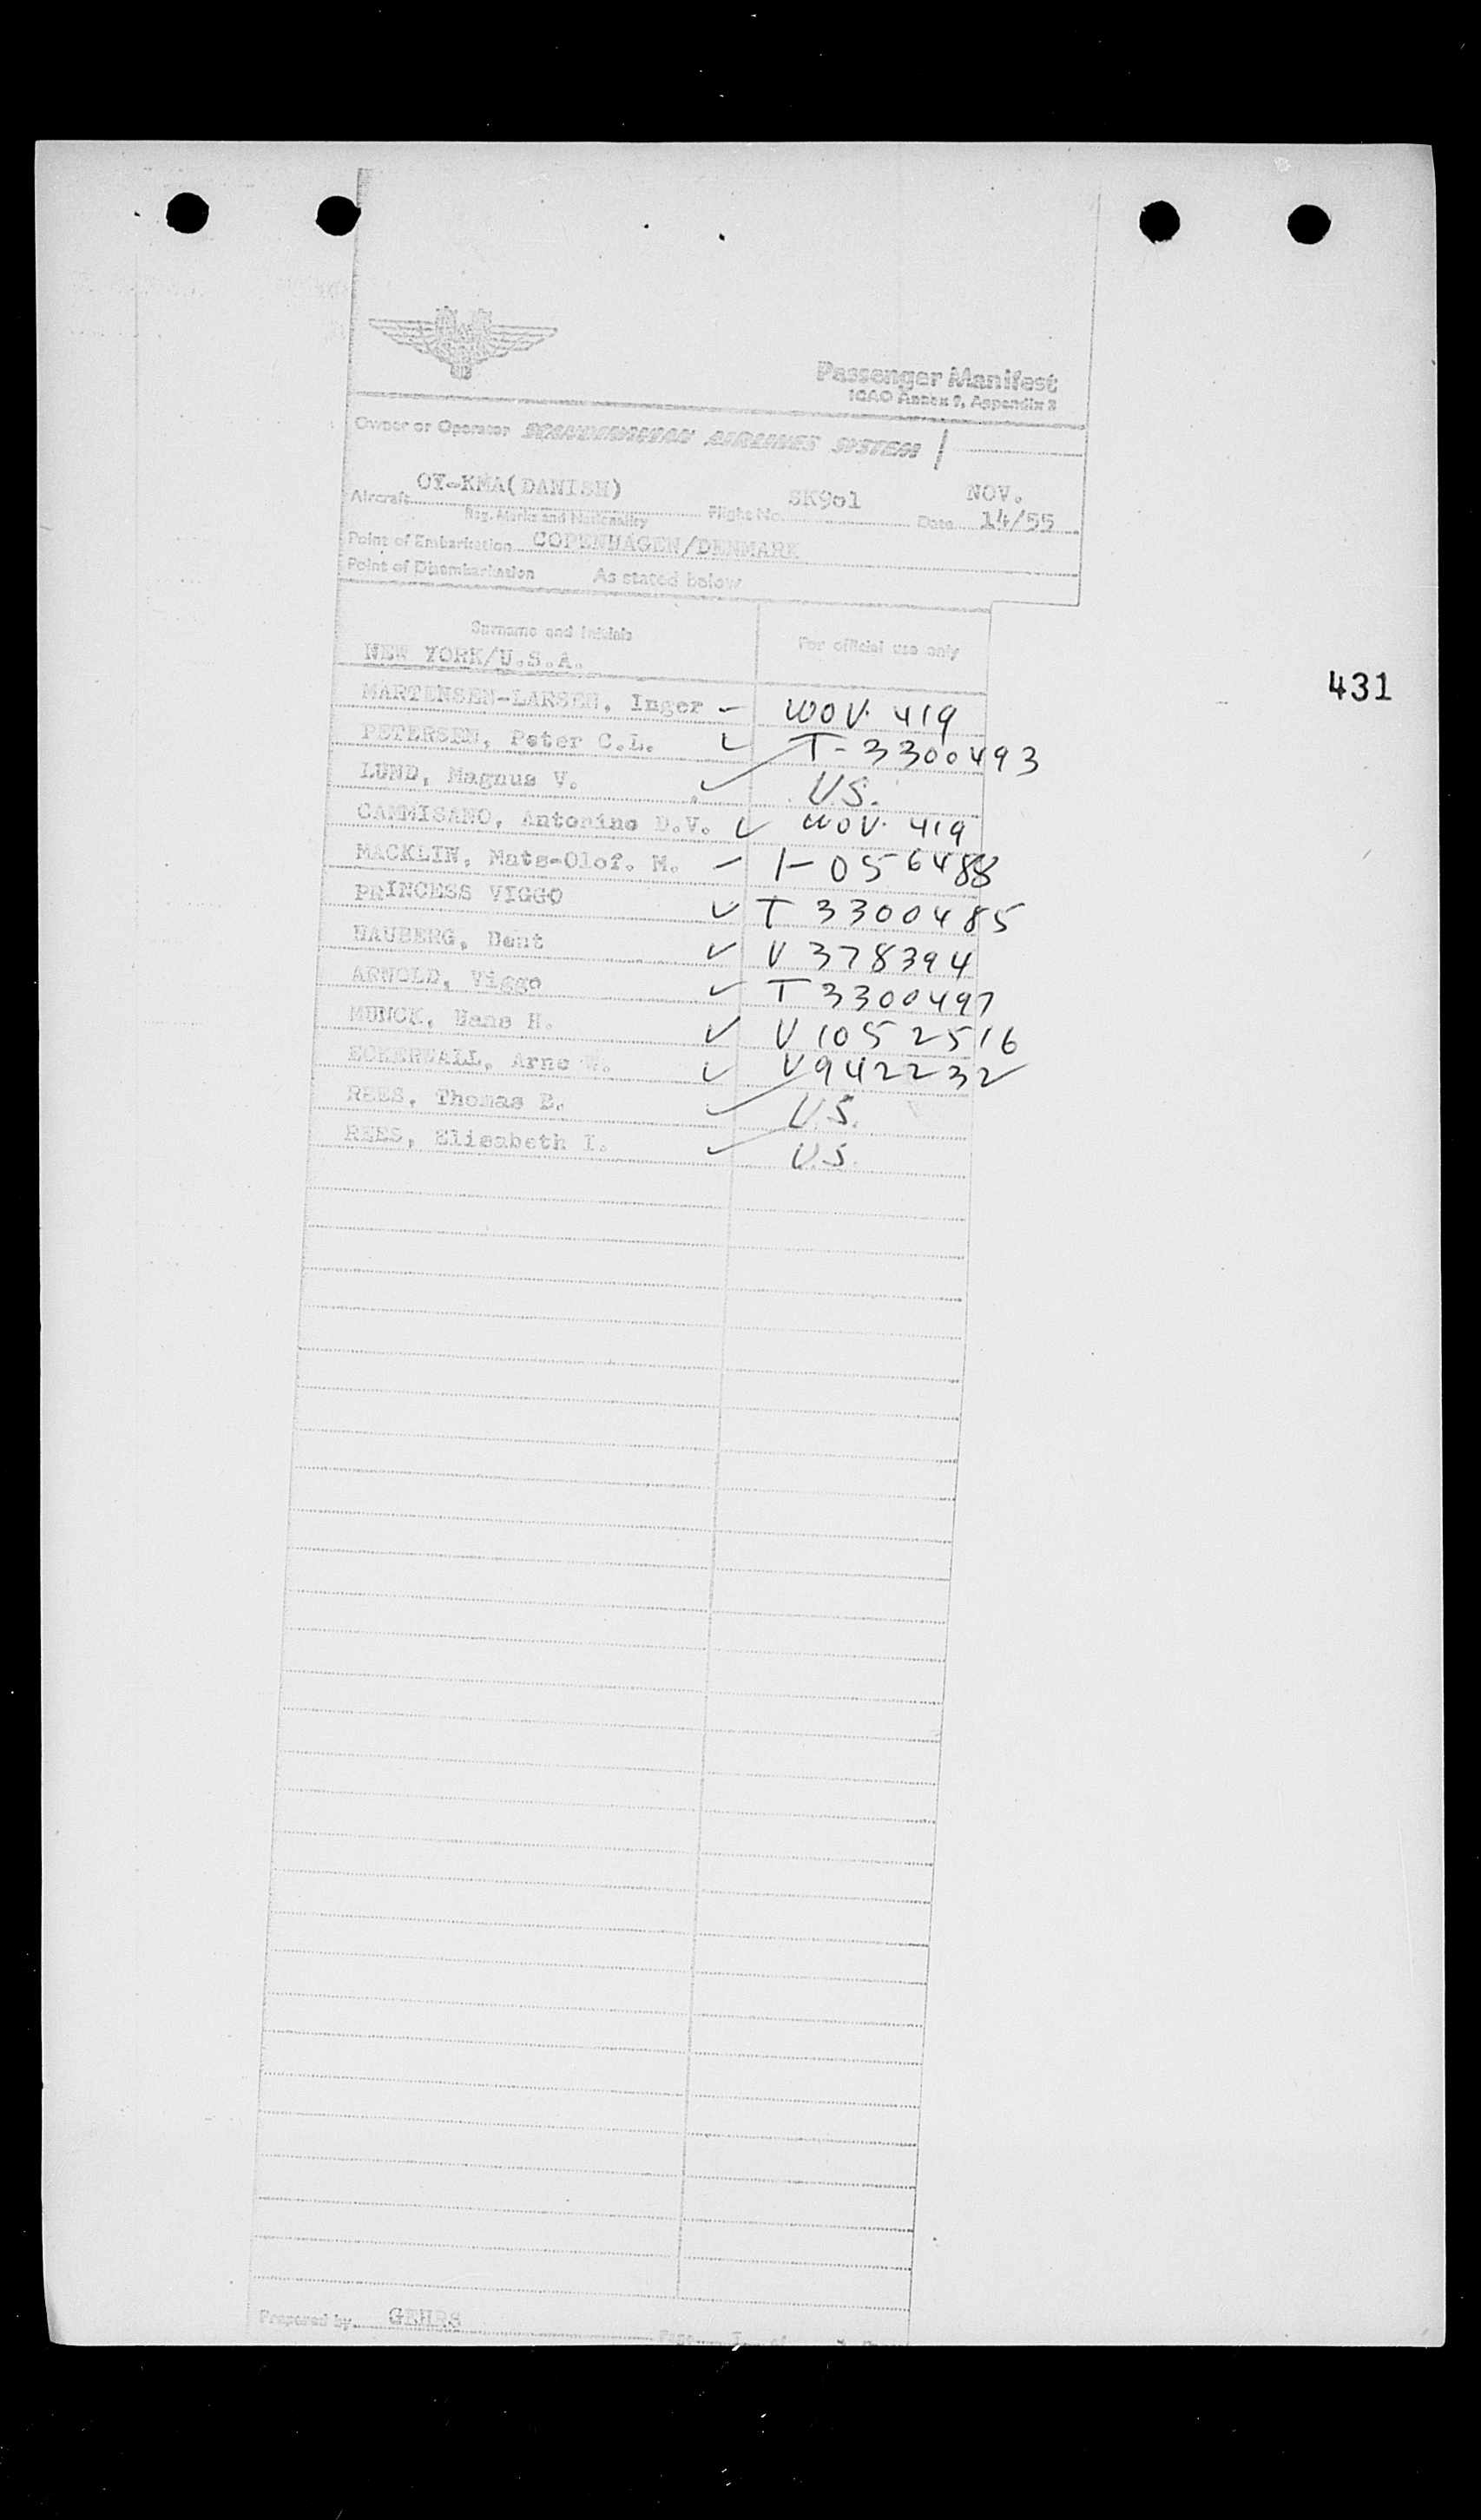 Passenger Manifest
ICAO Annex 9, Appendix 3
Owner or Operator SCANDINAVIAN AIRLINES SYSTEM
OY-KMA(DANISH) SK901 NOV.
Aircraft Flight No. Date 14/55
Reg. Marks and Nationality
Point of Embarkation COPENHAGEN/DENMARK
Point of Disembarkation As stated below
Surname and Initials For official use only
NEW YORK/U.S.A.
431
MARTENSEN-LARSEN, Inger - WOV. 419
PETERSEN, Peter C.L. ✓ T-3300493
LUND, Magnus V. ✓ U.S.
CAMMISANO, Antonino D.V. ✓ WOV. 419
MACKLIN, Mats-Olof. M. - I-056488
PRINCESS VIGGO ✓ T 3300485
HAUBERG, Bent ✓ V 378394
ARNOLD, Viggo ✓ T 3300497
MUNCK, Hans H. ✓ V 1052516
ECKERWALL, Arne W. ✓ V942232
REES, Thomas B. ✓ U.S.
REES, Elisabeth I. ✓ U.S.
Prepared by GEHRS